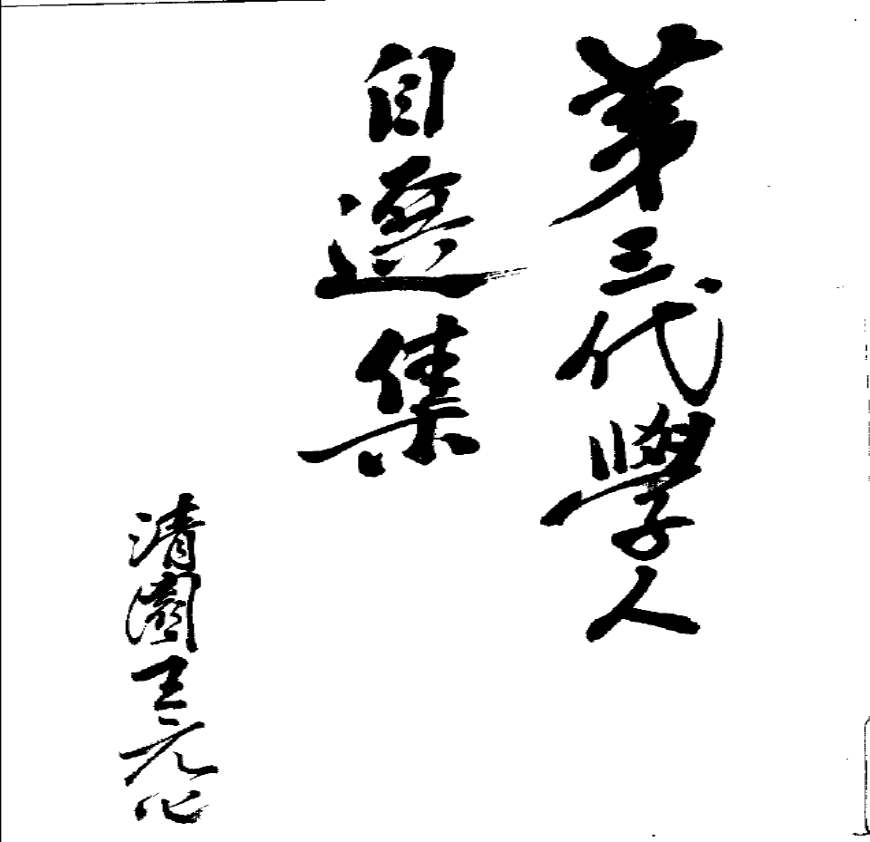 第三代學人
自選集
清園王元化